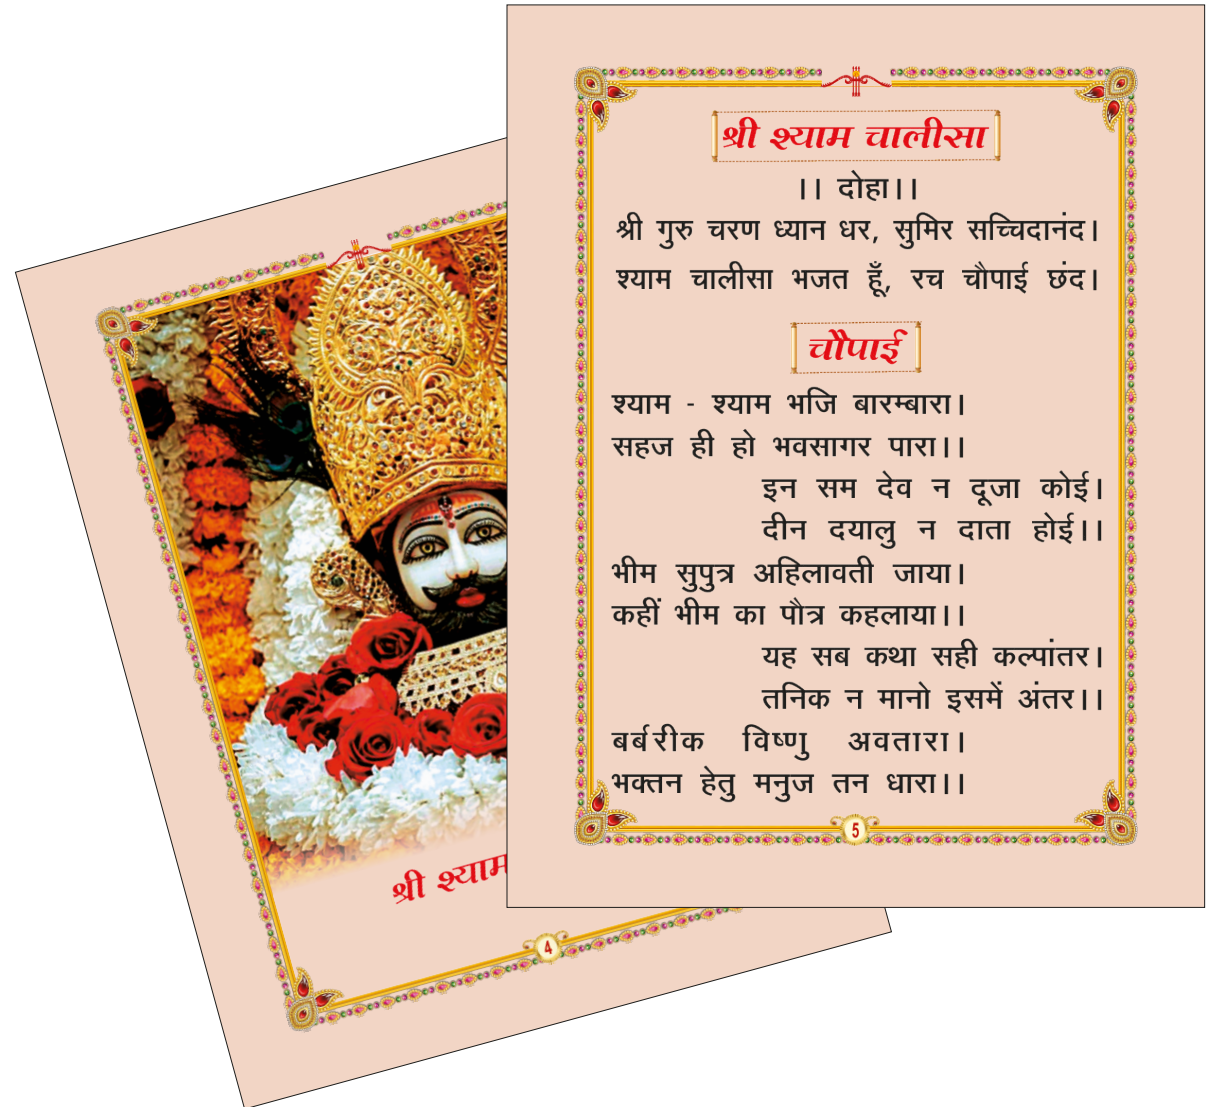 श्री श्याम चालीसा
।। दोहा।।
श्री गुरु चरण ध्यान धर, सुमिर सच्चिदानंद।
श्याम चालीसा भजत हूँ, रच चौपाई छंद।
चौपाई
श्याम - श्याम भजि बारम्बारा।
सहज ही हो भवसागर पारा।।
इन सम देव न दूजा कोई।
दीन दयालु न दाता होई।।
भीम सुपुत्र अहिलावती जाया।
कहीं भीम का पौत्र कहलाया।।
यह सब कथा सही कल्पांतर।
तनिक न मानो इसमें अंतर।।
बर्बरीक विष्णु अवतारा।
भक्तन हेतु मनुज तन धारा।।
5
श्री श्याम
4